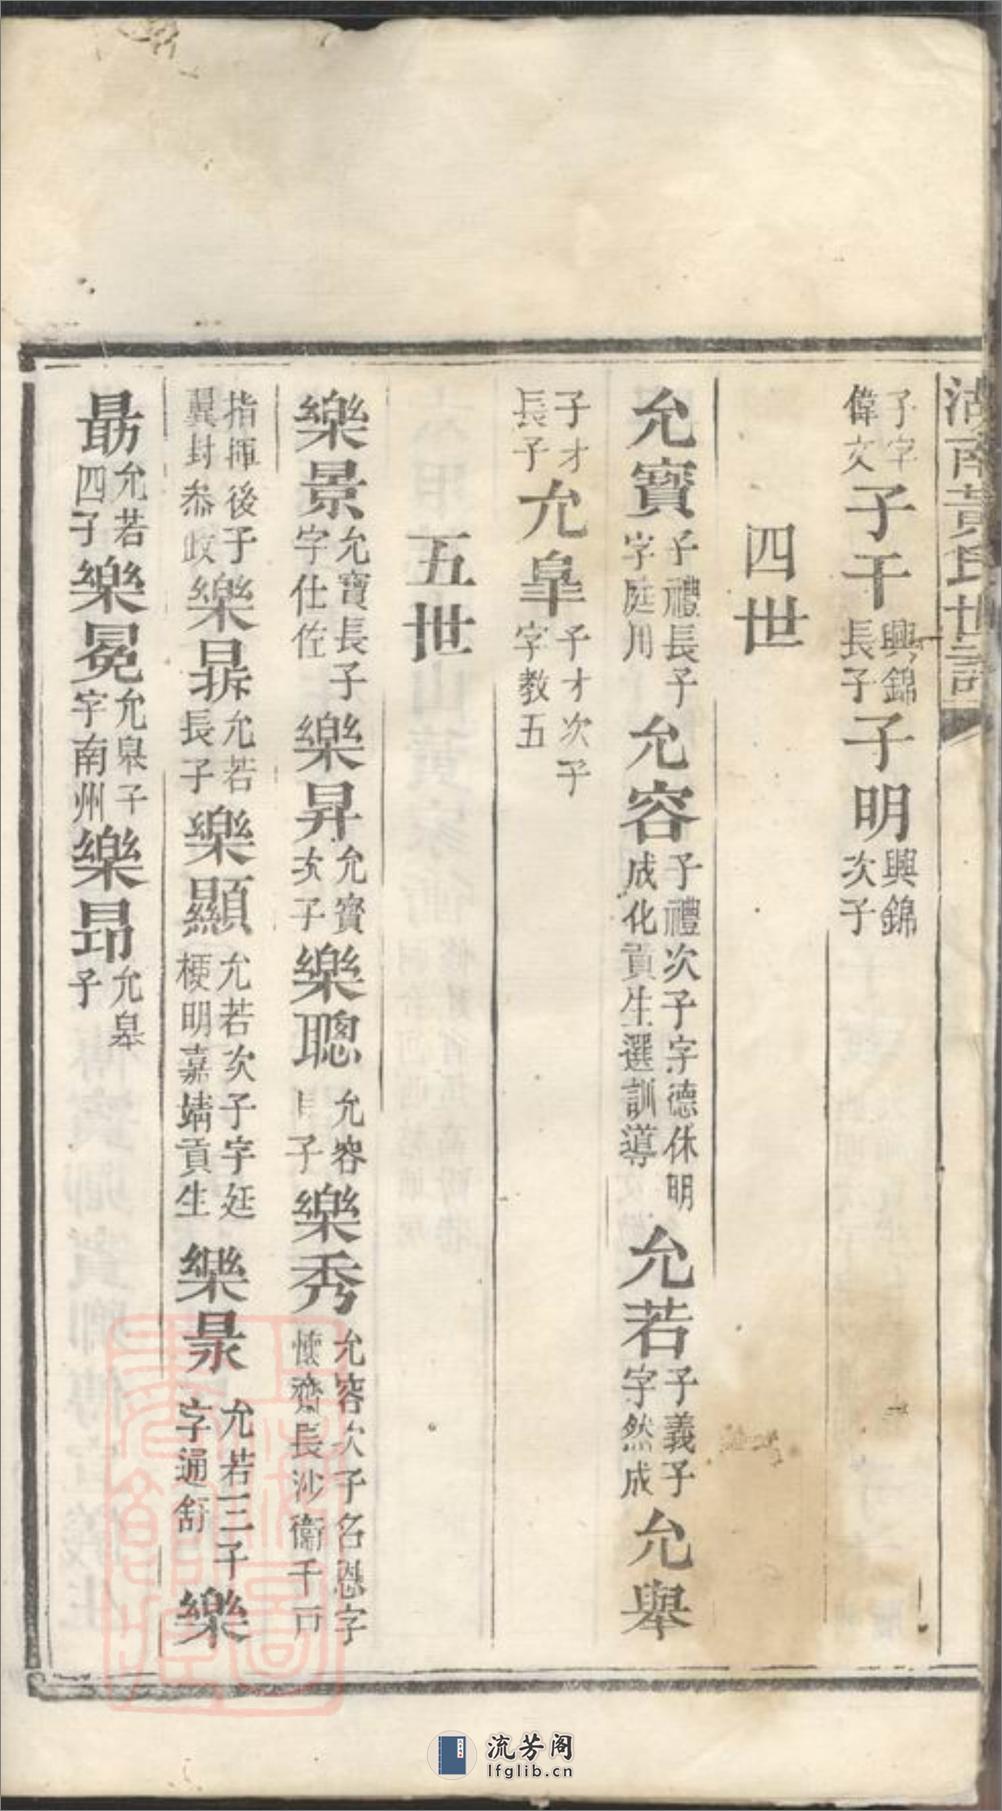 湖南黃氏世譜
子字偉文子干興錦長子子明興錦次子
四世
允寶子禮長子字庭川允容子禮次子字德休明成化貢生選訓導允若子義子字然成允舉
子才長子允皐子才次子字教五
五世
樂景允寶長子字仕佐樂昇允寶次子樂聰允容長子樂秀允容次子名恩字懷齋長沙衞千戸
指揮後于翼封叅政樂㬥允若長子樂顯允若次子字廷梗明嘉靖貢生樂㫤允若三子字通舒樂
勗允若四子樂冕允皋子字南州樂昂允皋子
流芳阁
lfglib.cn